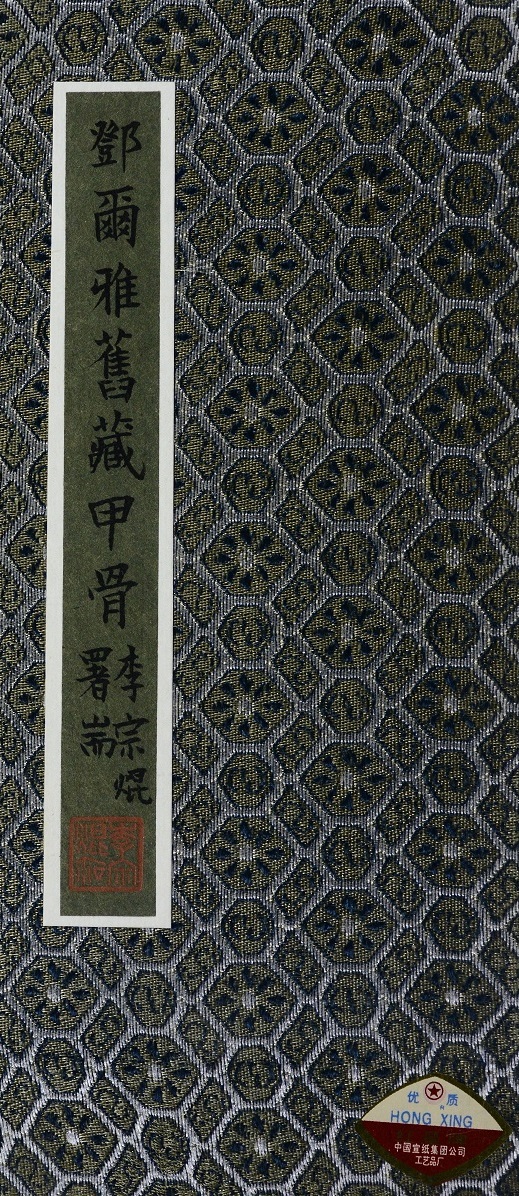 鄧爾雅舊藏甲骨
李宗焜
署耑
优质
HONG XING
中国宣纸集团公司
工艺品厂